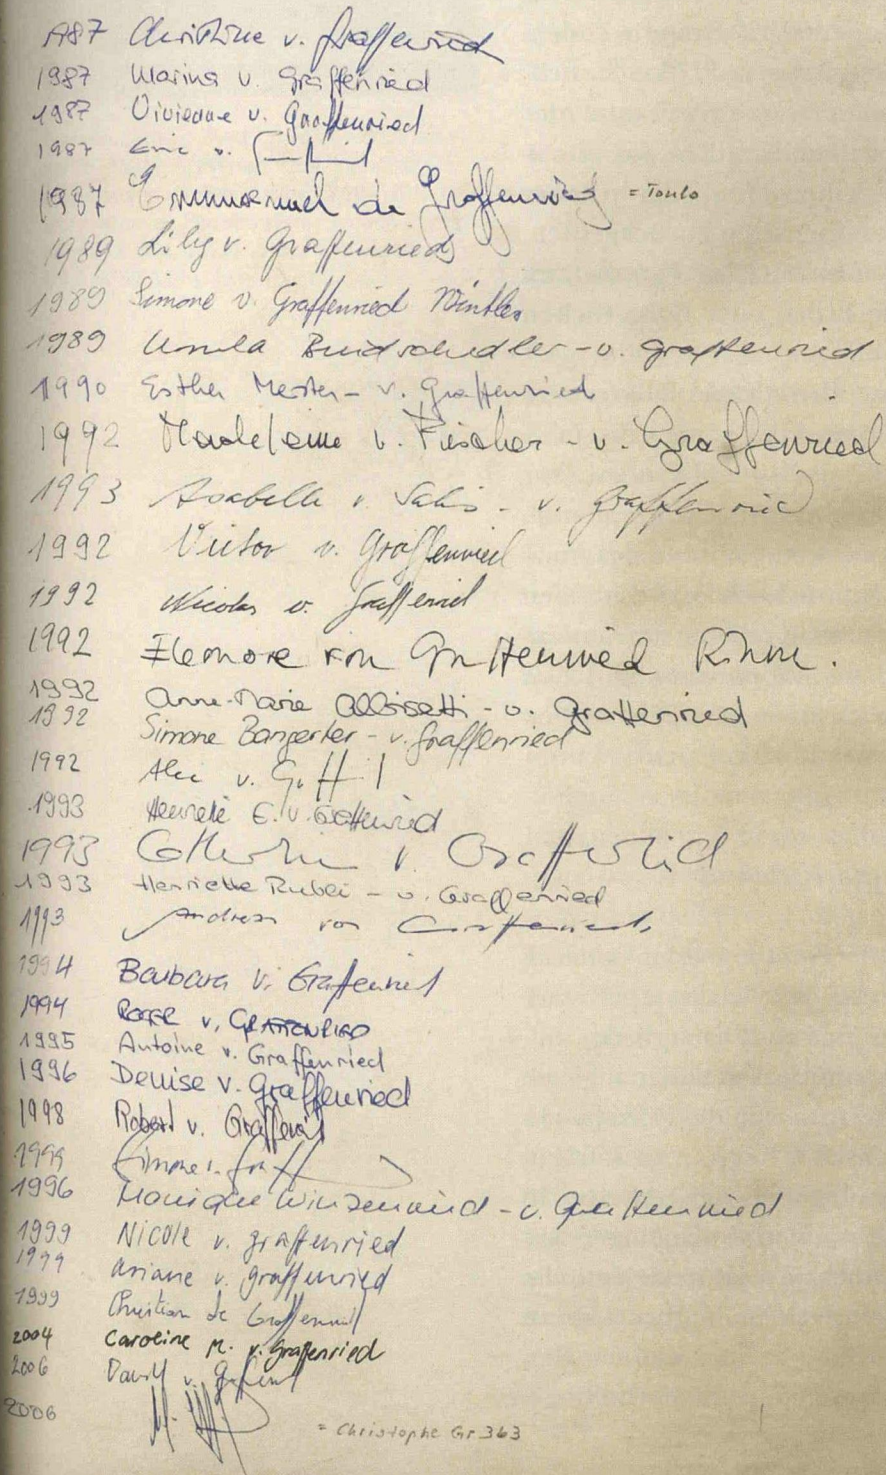 1987 Christine v. Graffenried
1987 Marina v. Graffenried
1987 Vivienne v. Graffenried
1987 Eric v.
1987 Emmanuel de Graffenried = Toulo
1989 Lily v. Graffenried
1989 Simone v. Graffenried Winkler
1989 Ursula Buidschedler - v. Graffenried
1990 Esther Mester - v. Graffenried
1992 Madeleine v. Fischer - v. Graffenried
1993 Arabella v. Salis - v. Graffenried
1992 Victor v. Graffenried
1992 Nicolas v. Graffenried
1992 Eleonore von Graffenried
1992 Anne-Marie Albisetti - v. Graffenried
1992 Simone Bangerter - v. Graffenried
1992 v.
1993 v. Graffenried
1993 v. Graffenried
1993 Henriette - v. Graffenried
1993 Andreas von Graffenried
1994 Barbara v. Graffenried
1994 ROGER v. GRAFFENRIED
1995 Antoine v. Graffenried
1996 Denise v. Graffenried
1998 Robert v. Graffenried
1999 Simone v.
1996 Monique Winzenried - v. Graffenried
1999 Nicole v. Graffenried
1999 Ariane v. Graffenried
1999 Christian de Graffenried
2004 Caroline M. v. Graffenried
2006 David v. Graffenried
2006 M.
= Christophe Gr 363